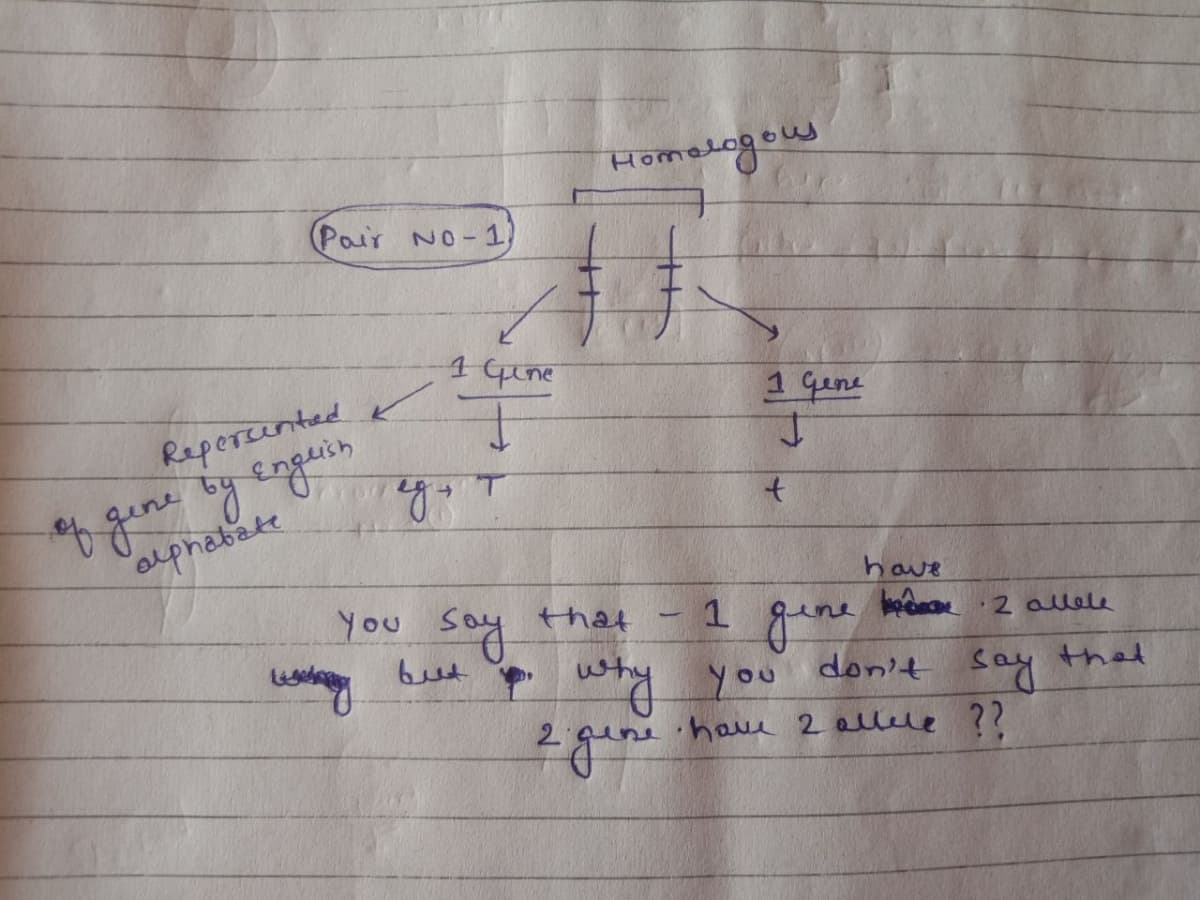 Homologous
Pair NO-1
1 Gene
1 Gene
Repersented
of gene by English
alphabate
eg → T
t
have
you say that - 1 gene 2 allele
but why you don't say that
2 gene have 2 allele ??